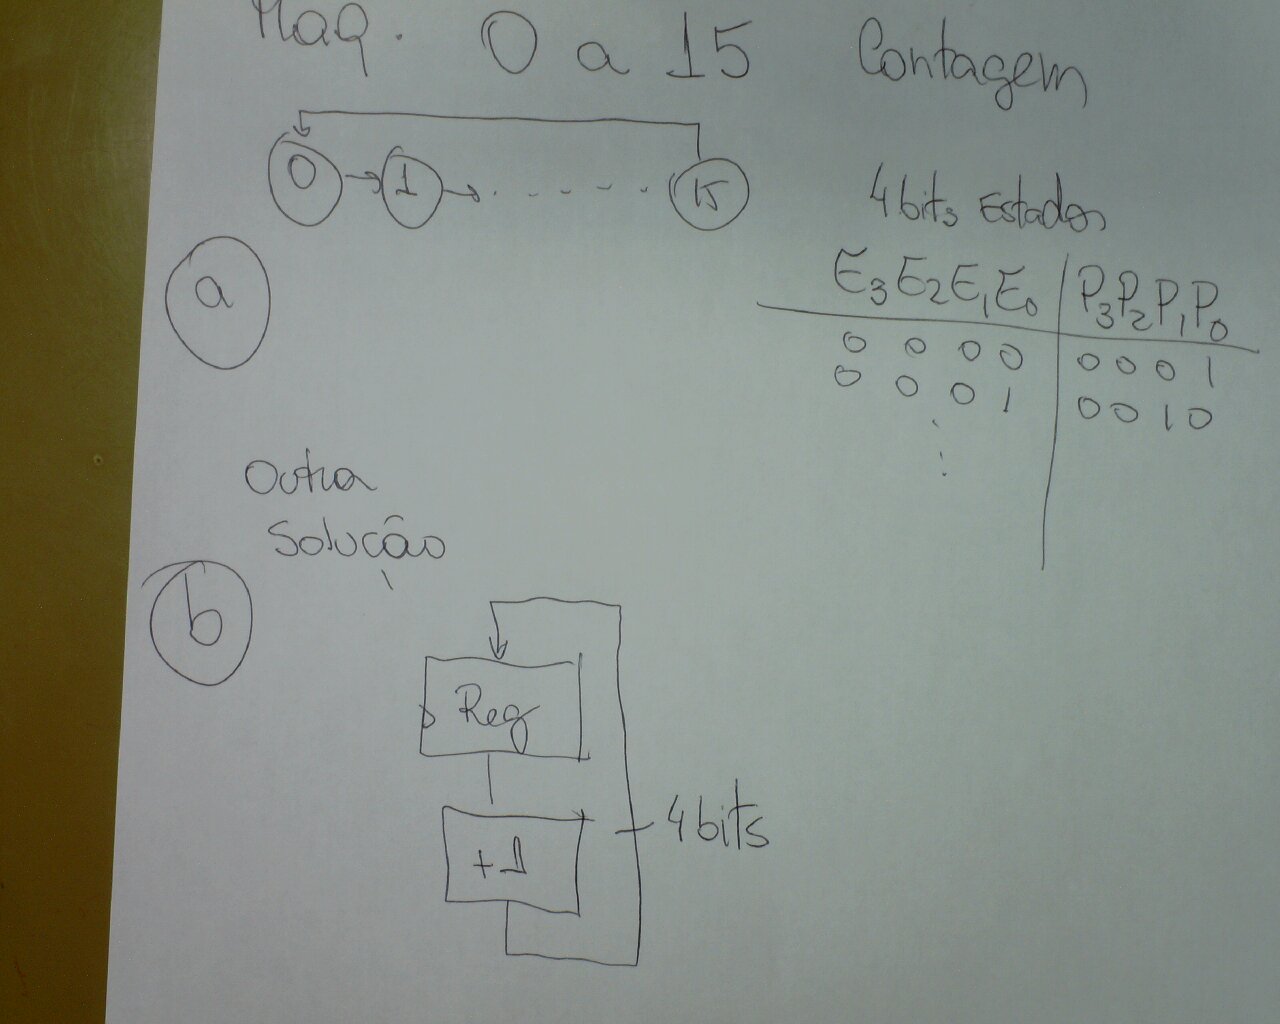 Maq. 0 a 15 Contagem
0 → 1 → . - - - - . 15
4 bits Estados
a
E3 E2 E1 E0 | P3 P2 P1 P0
0 0 0 0 | 0 0 0 1
0 0 0 1 | 0 0 1 0
Outra
Solução
b
Reg
+1
4 bits